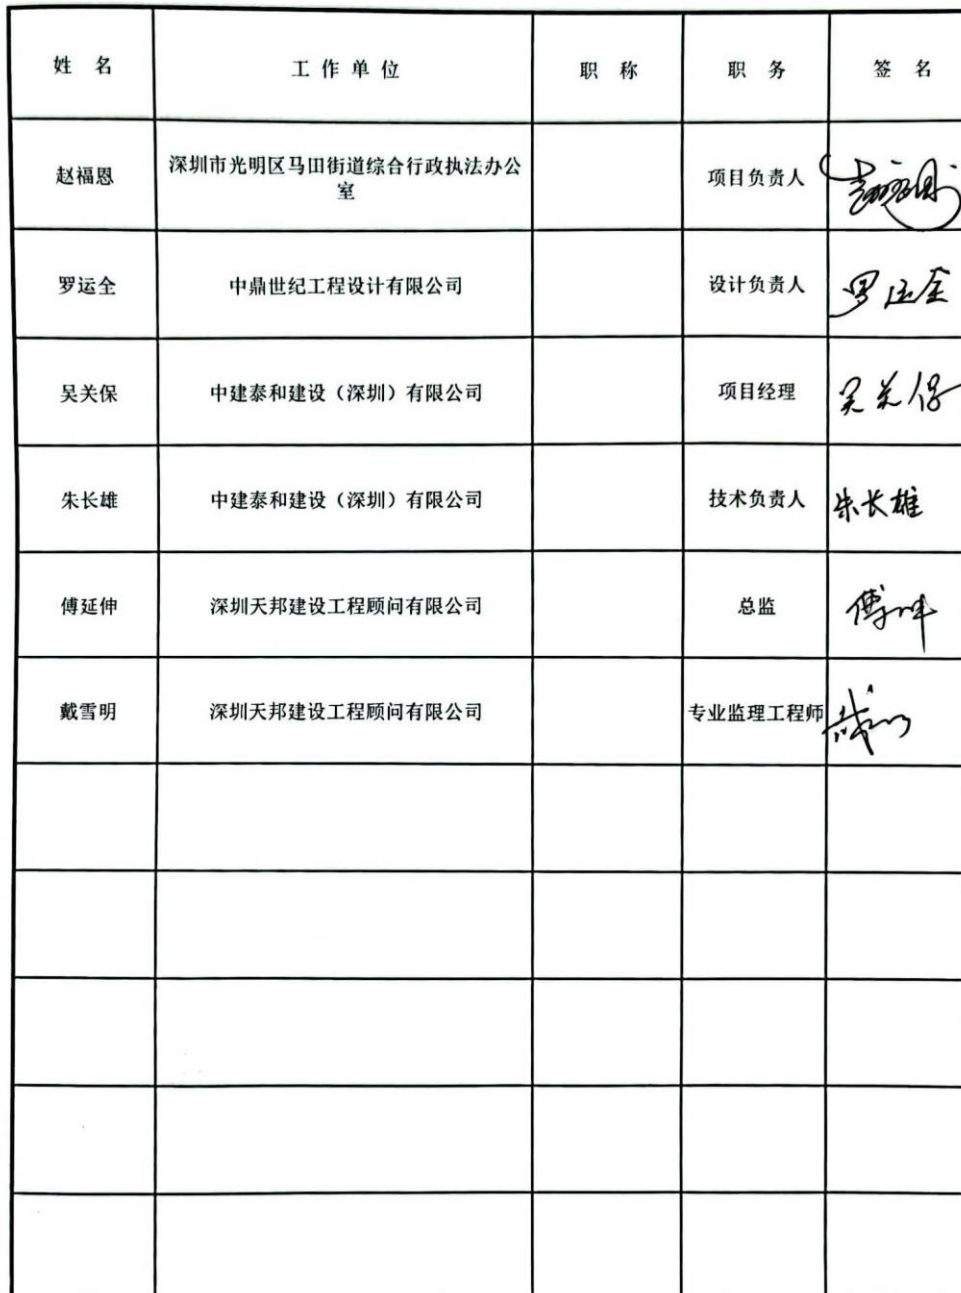 姓 名 工 作 单 位 职 称 职 务 签 名
赵福恩 深圳市光明区马田街道综合行政执法办公
室 项目负责人
罗运全 中鼎世纪工程设计有限公司 设计负责人 罗运全
吴关保 中建泰和建设（深圳）有限公司 项目经理 吴关保
朱长雄 中建泰和建设（深圳）有限公司 技术负责人 朱长雄
傅延伸 深圳天邦建设工程顾问有限公司 总监
戴雪明 深圳天邦建设工程顾问有限公司 专业监理工程师